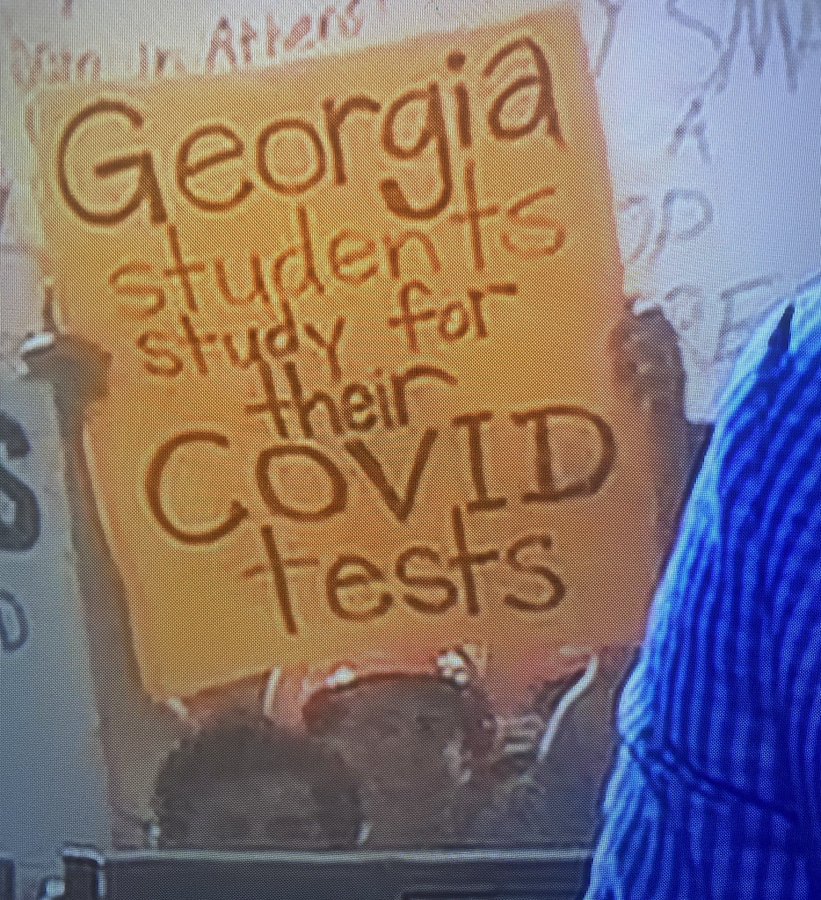 in Athens
SMA
A
Georgia
students
study for
their
COVID
tests